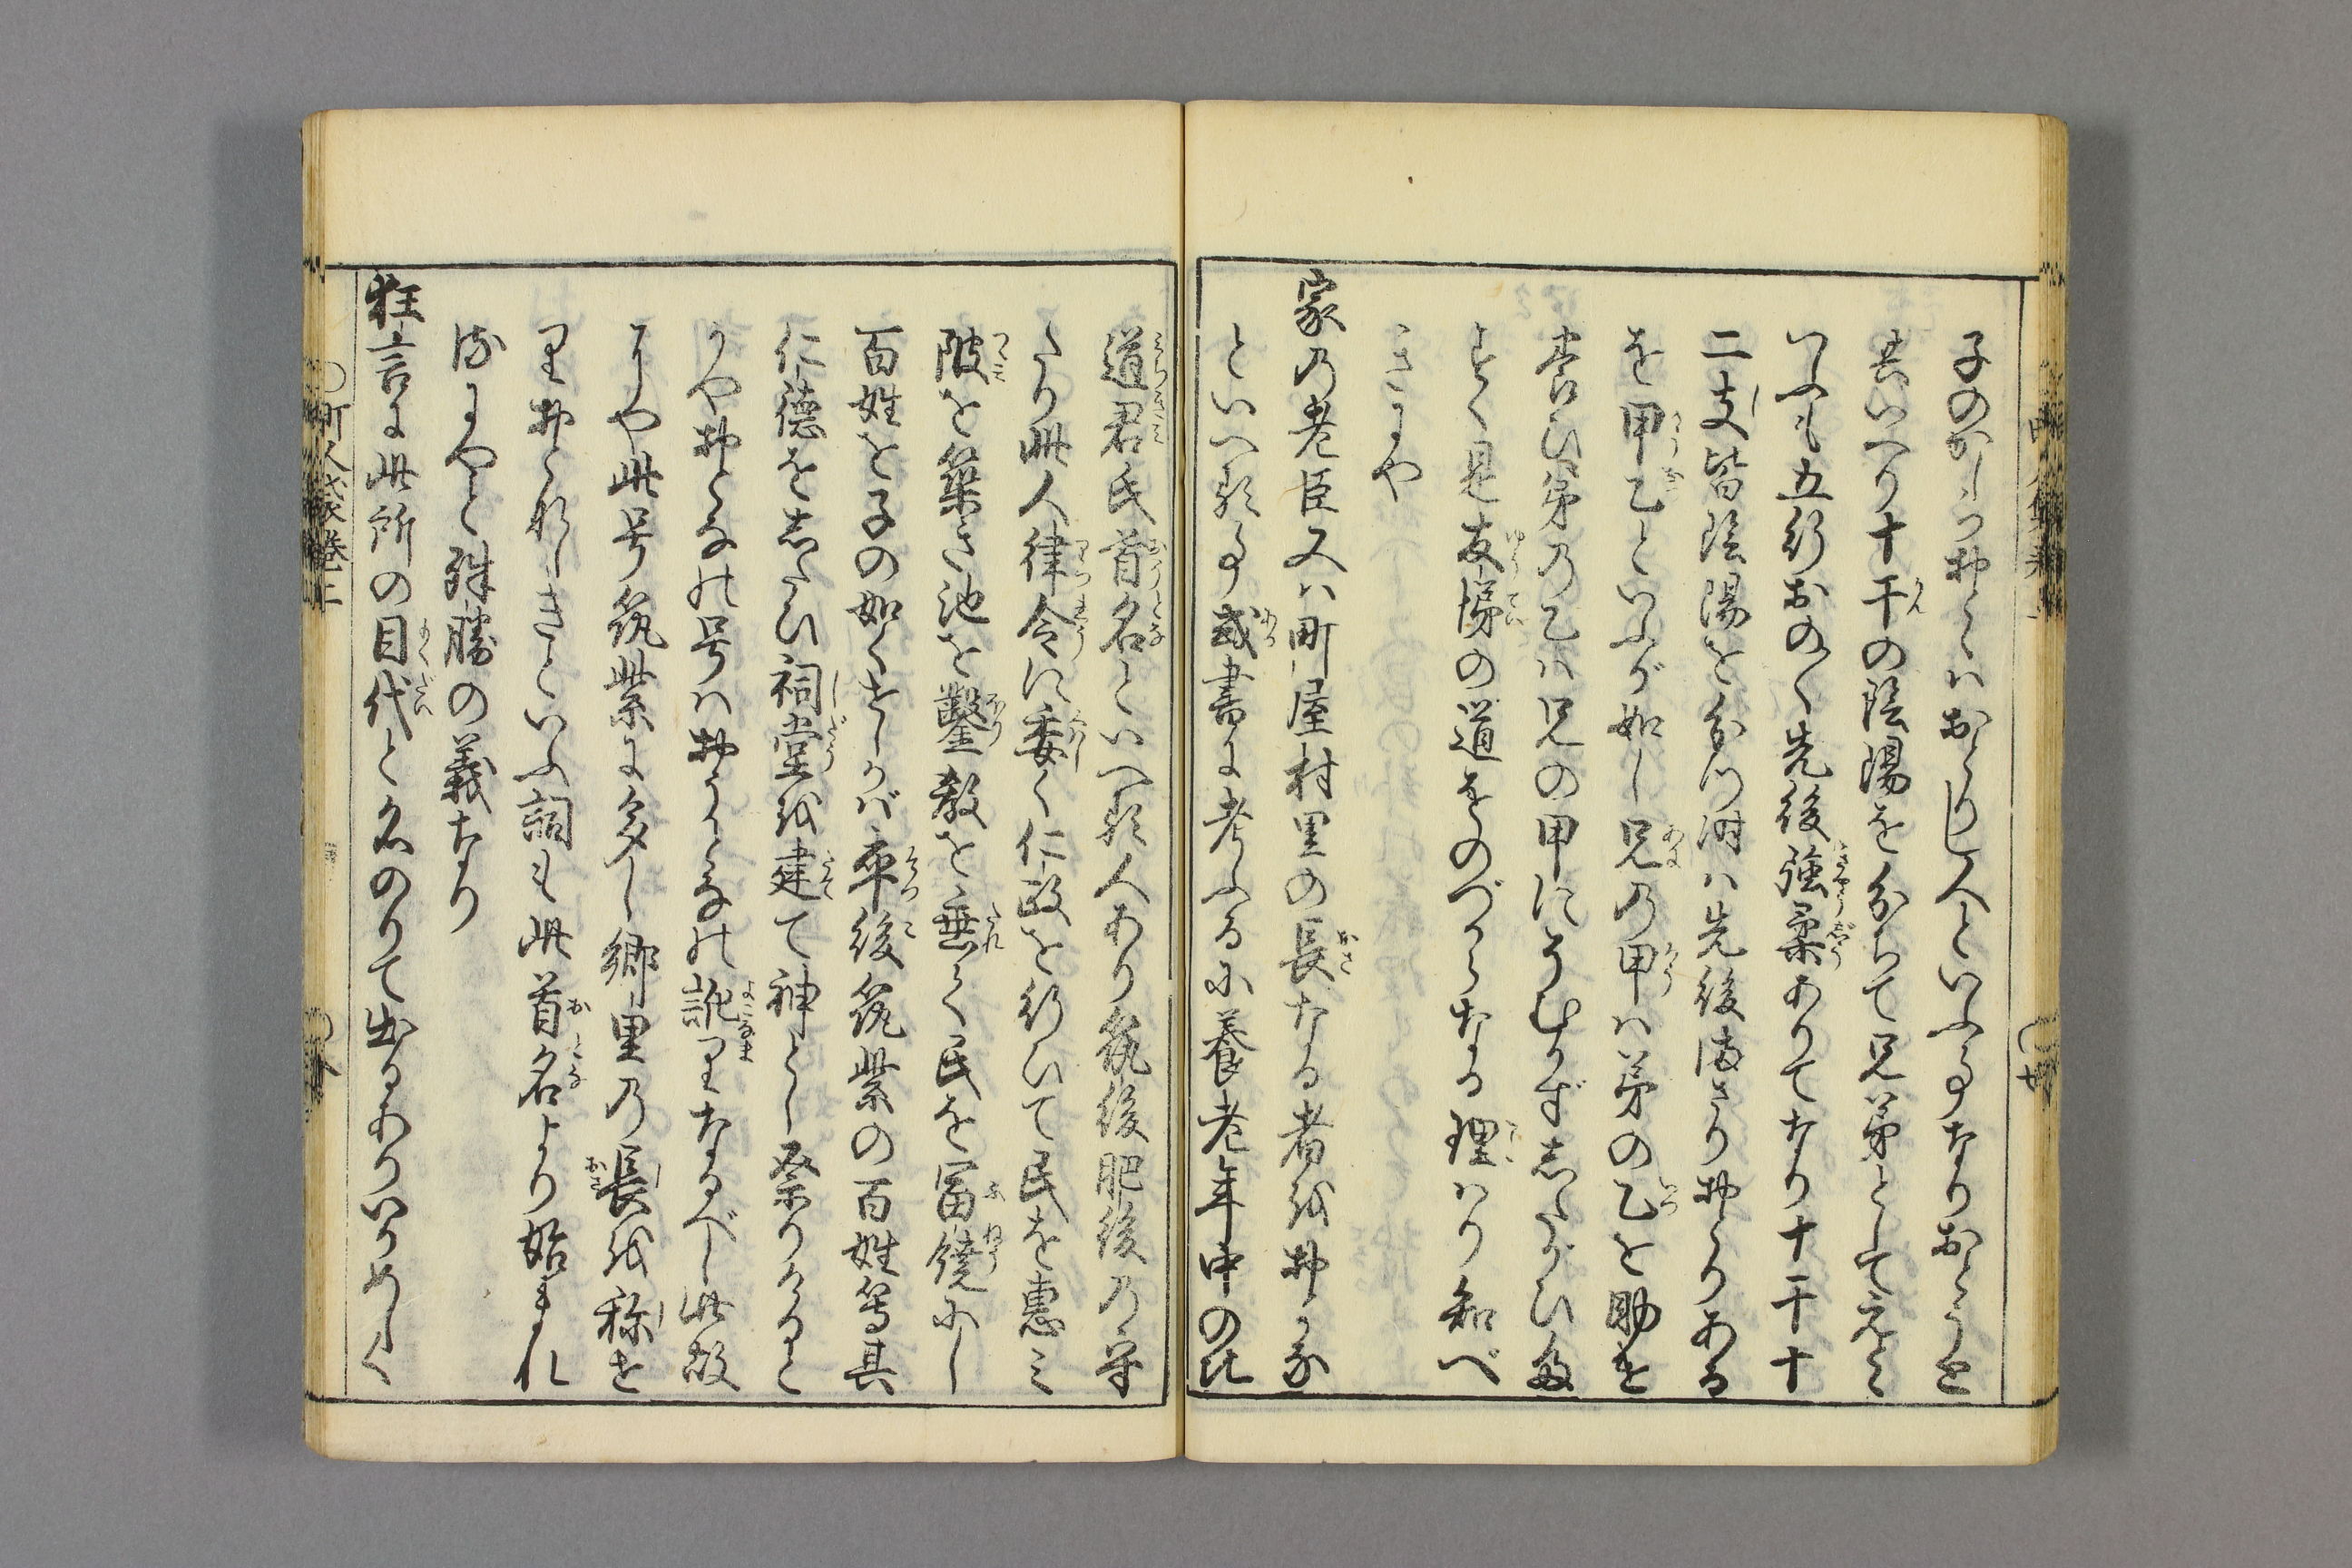 子のかしつおとゝはおとりし人といふ事なりおとうと
共いへり十干の陰陽を分ちて兄弟としてえと
いふも五行おの〱先後強柔ありてなり十干十
二支皆陰陽を分つ時は先後まさりおとりある
を甲乙といふが如し兄の甲は弟の乙を助を
養ひ弟の乙は兄の甲にそむかずしたがひま
とく是友悌の道をのづからなる理はり知べ
きにや
家の老臣又は町屋村里の長なる者をおとな
といへる事或書に考ふるに養老年中の比
道君氏首名といへる人あり筑後肥後乃守
たり此人律令に委く仁政を行ひて民を恵み
陂を築き池を鑿教を垂て民を冨饒にし
百姓を子の如くせしかば卒後筑紫の百姓等其
仁徳をしたひ祠堂を建て神とし祭りけると
かやおとなの号はおうとなの訛りなるべし此故
にや此号筑紫に多し郷里の長を称を
りおとなしきといふ詞も此首名より始まれ
るにやと殊勝の義なり
狂言に此所の目代と名のりて出るありいかめしく
町人袋巻三